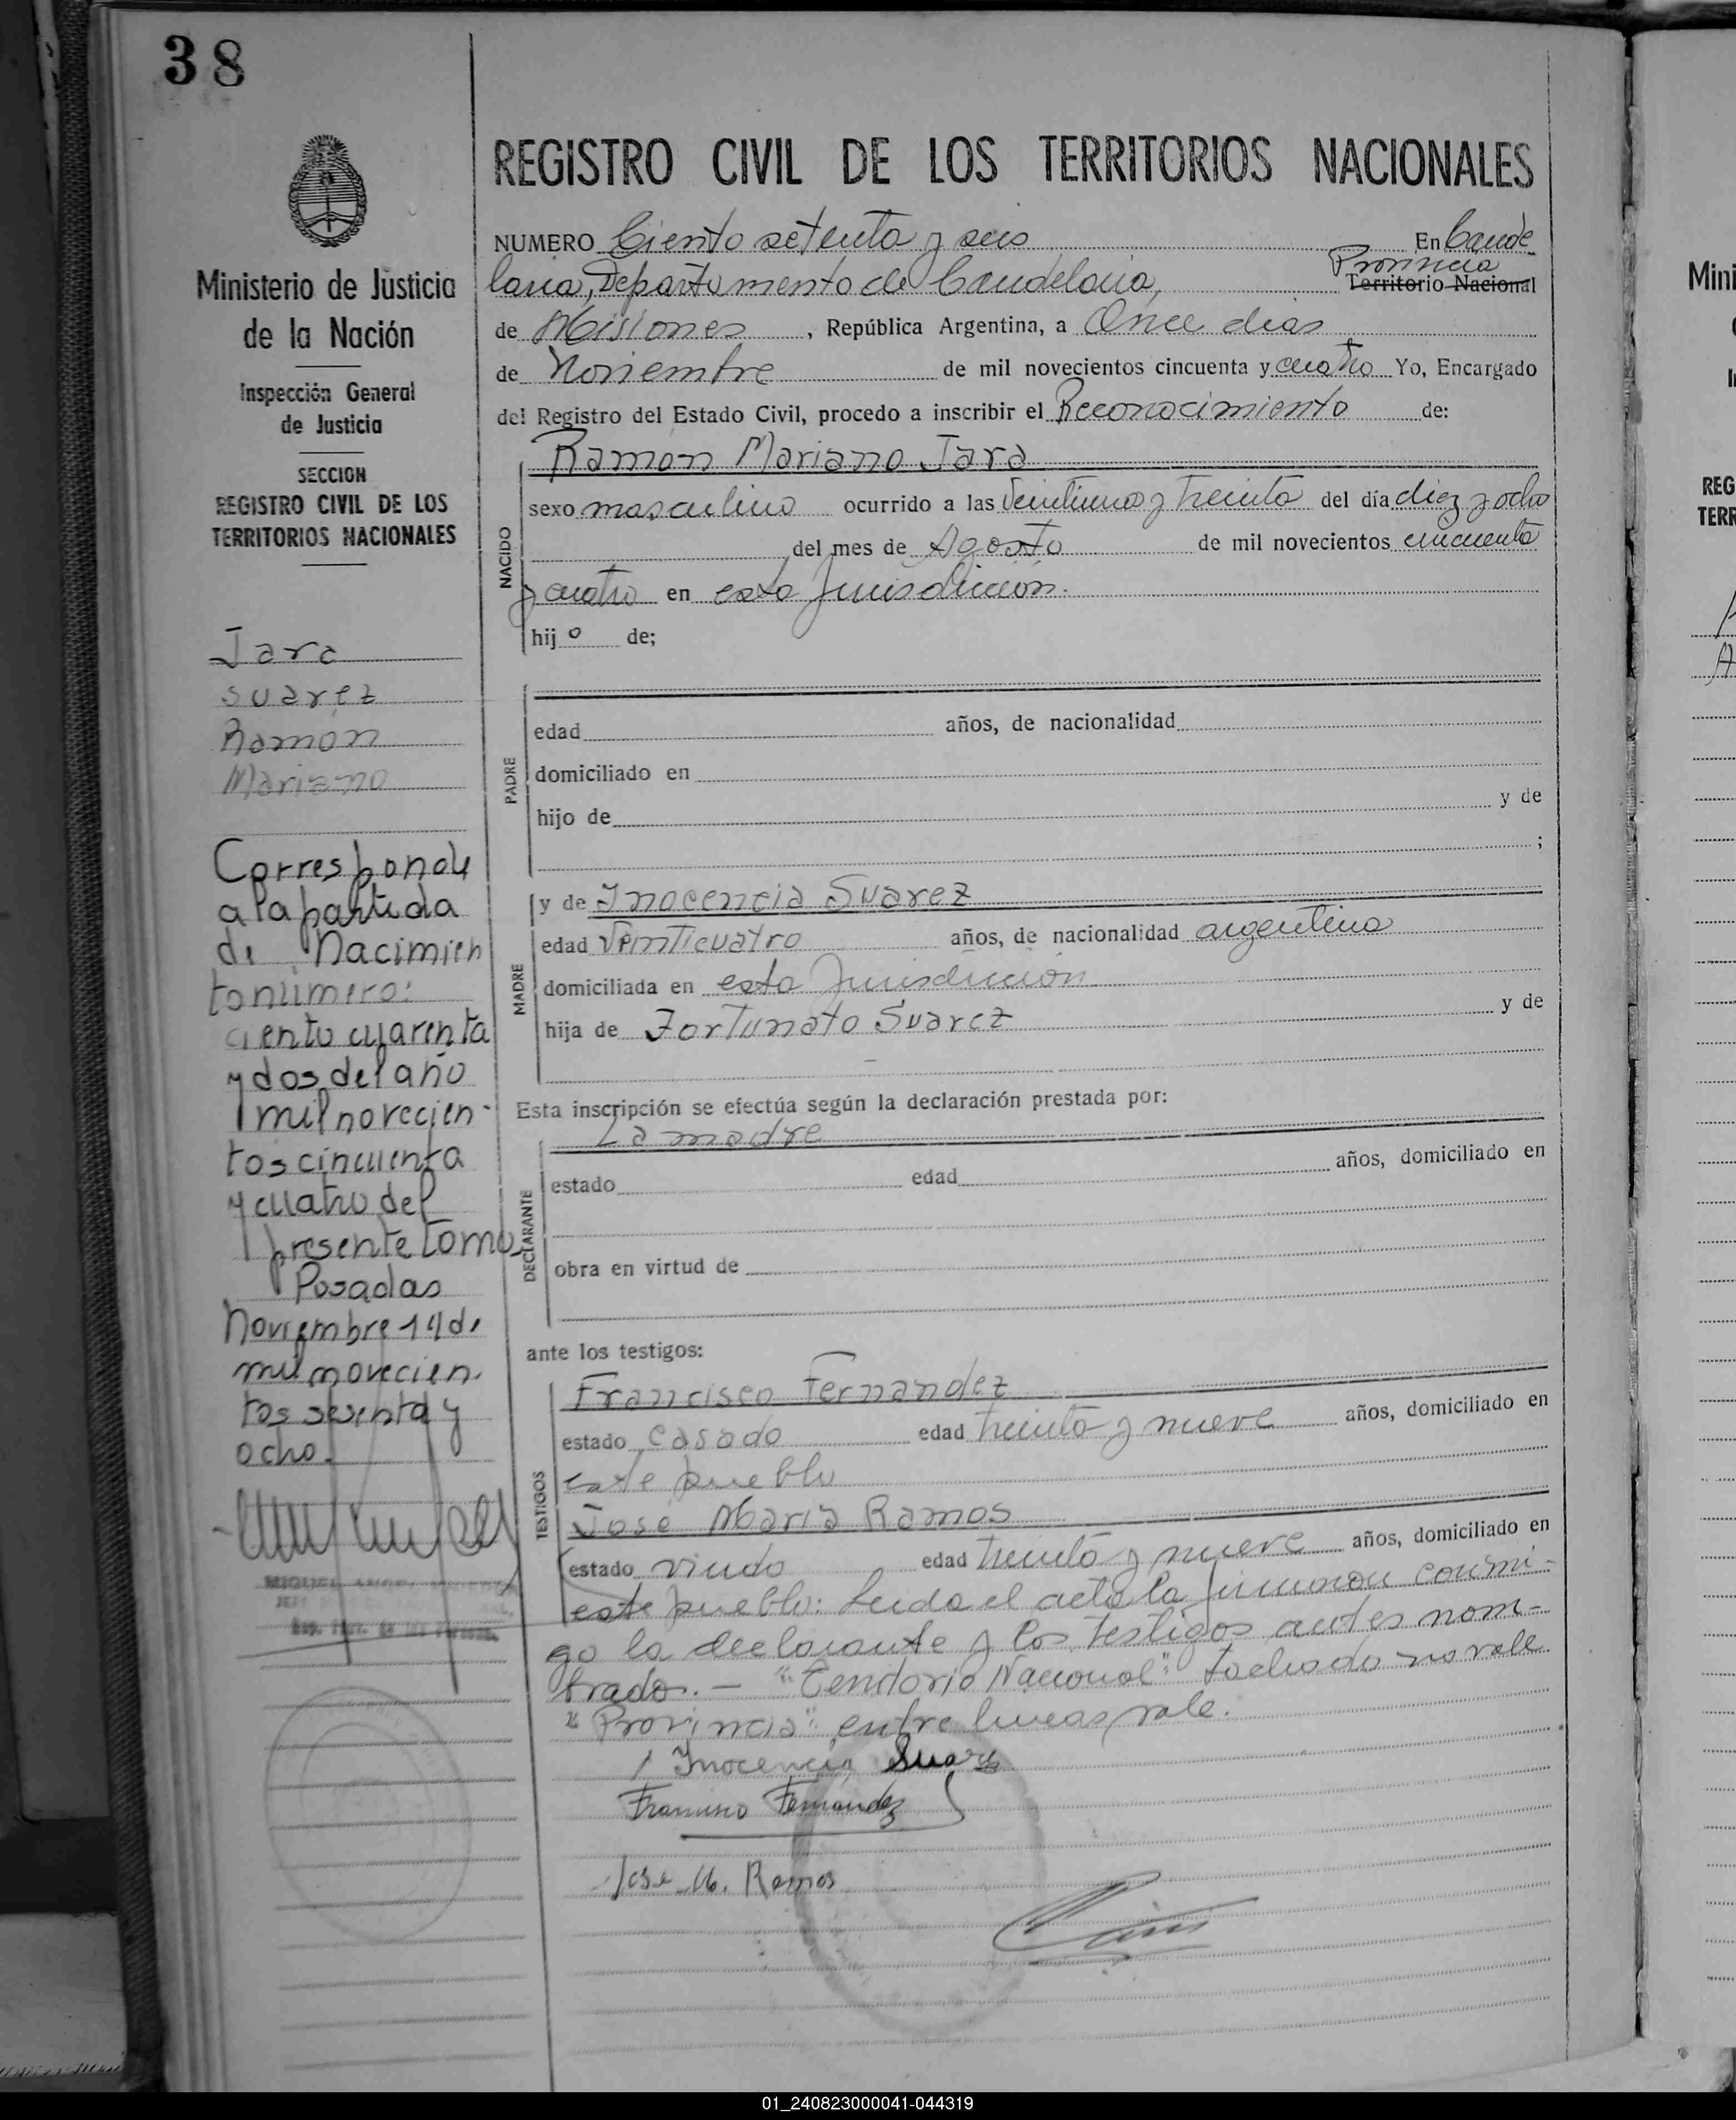 38
REGISTRO CIVIL DE LOS TERRITORIOS NACIONALES
Ministerio de Justicia
de la Nación
Inspección General
de Justicia
SECCION
REGISTRO CIVIL DE LOS
TERRITORIOS NACIONALES
Jara
Suarez
Ramon
Mariano
Corresponde
a la partida
de Nacimien
to número:
ciento cuarenta
y dos del año
mil novecien-
tos cincuenta
y cuatro del
presente tomo
Posadas
Noviembre 14 de
mil novecien.
tos sesenta y
ocho.
NUMERO Ciento setenta y seis En Cande
laria, Departamento de Candelaria, Provincia
Territorio Nacional
de Misiones, República Argentina, a Once dias
de Noviembre de mil novecientos cincuenta y cuatro Yo, Encargado
del Registro del Estado Civil, procedo a inscribir el Reconocimiento de:
Ramon Mariano Jara
NACIDO
sexo masculino ocurrido a las veintiuna y treinta del día diez y ocho
del mes de Agosto de mil novecientos cincuenta
y cuatro en esta Jurisdicción.
hijo de;
PADRE
edad años, de nacionalidad
domiciliado en
hijo de y de
;
MADRE
y de Inocencia Suarez
edad Veinticuatro años, de nacionalidad argentina
domiciliada en esta Jurisdicción
hija de Fortunato Suarez y de
Esta inscripción se efectúa según la declaración prestada por:
DECLARANTE
La madre
estado edad años, domiciliado en
obra en virtud de
ante los testigos:
TESTIGOS
Francisco Fernandez
estado casado edad treinta y nueve años, domiciliado en
este pueblo
José Maria Ramos
estado viudo edad treinta y nueve años, domiciliado en
este pueblo: Leida el acta la firmaron conmi-
go la declarante y los testigos antes nom-
brado. — "Territorio Nacional": tachado no vale
"Provincia": entre lineas, vale.
Inocencia Suares
Francisco Fernandez
Jose M. Ramos
01_240823000041-044319